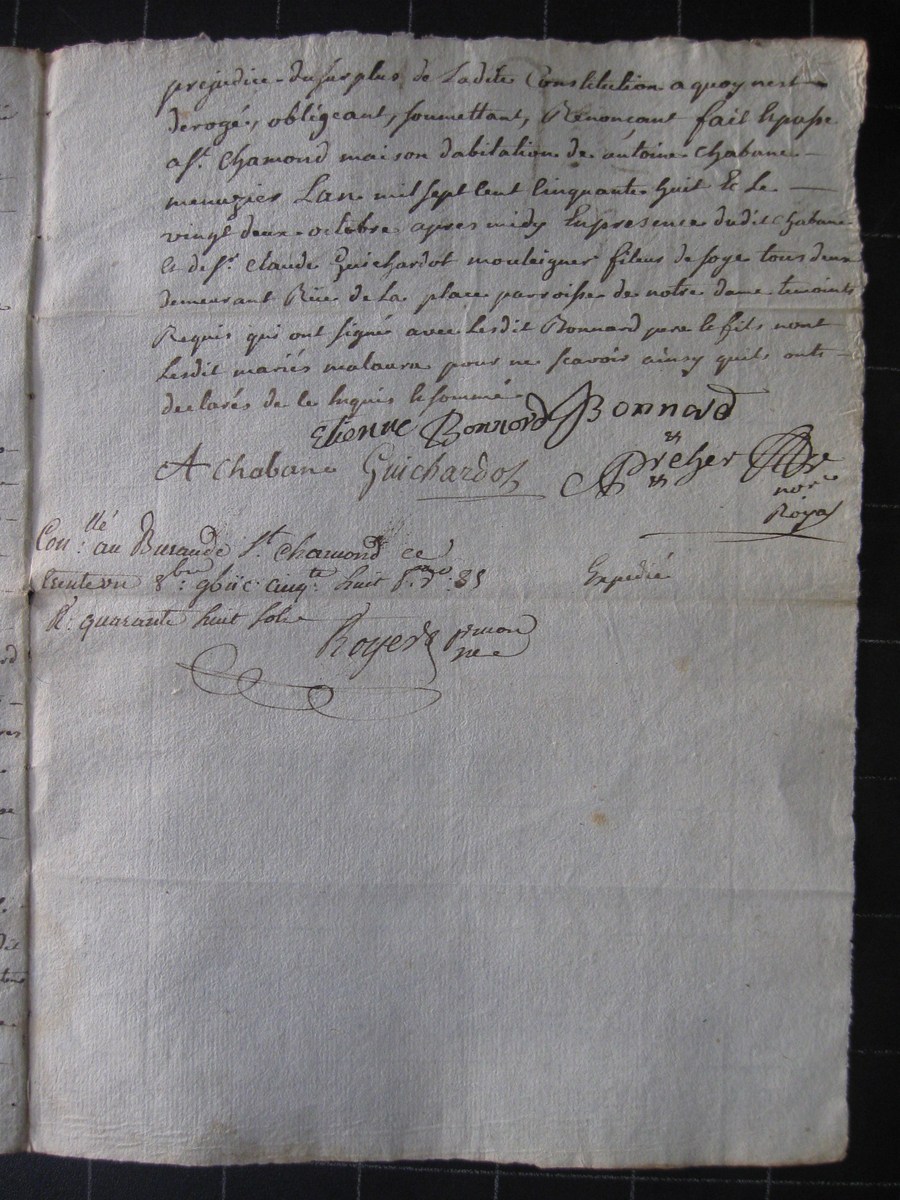 prejudice du surplus de Ladite Constitution a quoy nest
derogé, obligeant, soumettant, Renonçant fait Et passé
a St. Chamond maison dabitation de antoine Chabane
menuzier Lan mil sept Cent Cinquante huit Et Le
vingt deux octobre apres midy En presence dudit Chabane
et de Sr. Claude Guichardot mouleigner fileur de soye tous deux
demeurant Rüe de La place parroisse de notre dame temoints
Requis qui ont signé avec Lesdit Bonnard pere le fils nont
Lesdit mariés malaura pour ne scavoir ainsy quils onts
declarés de le Enquis le sommé
Etienne Bonnord Bonnard
A Chabane Guichardot
nore
Royal
Conllé au Bureau de St. Chamond ce
trente un 8bre gbiic cinqte huit
Expedié
R: quarante huit sols
Royer